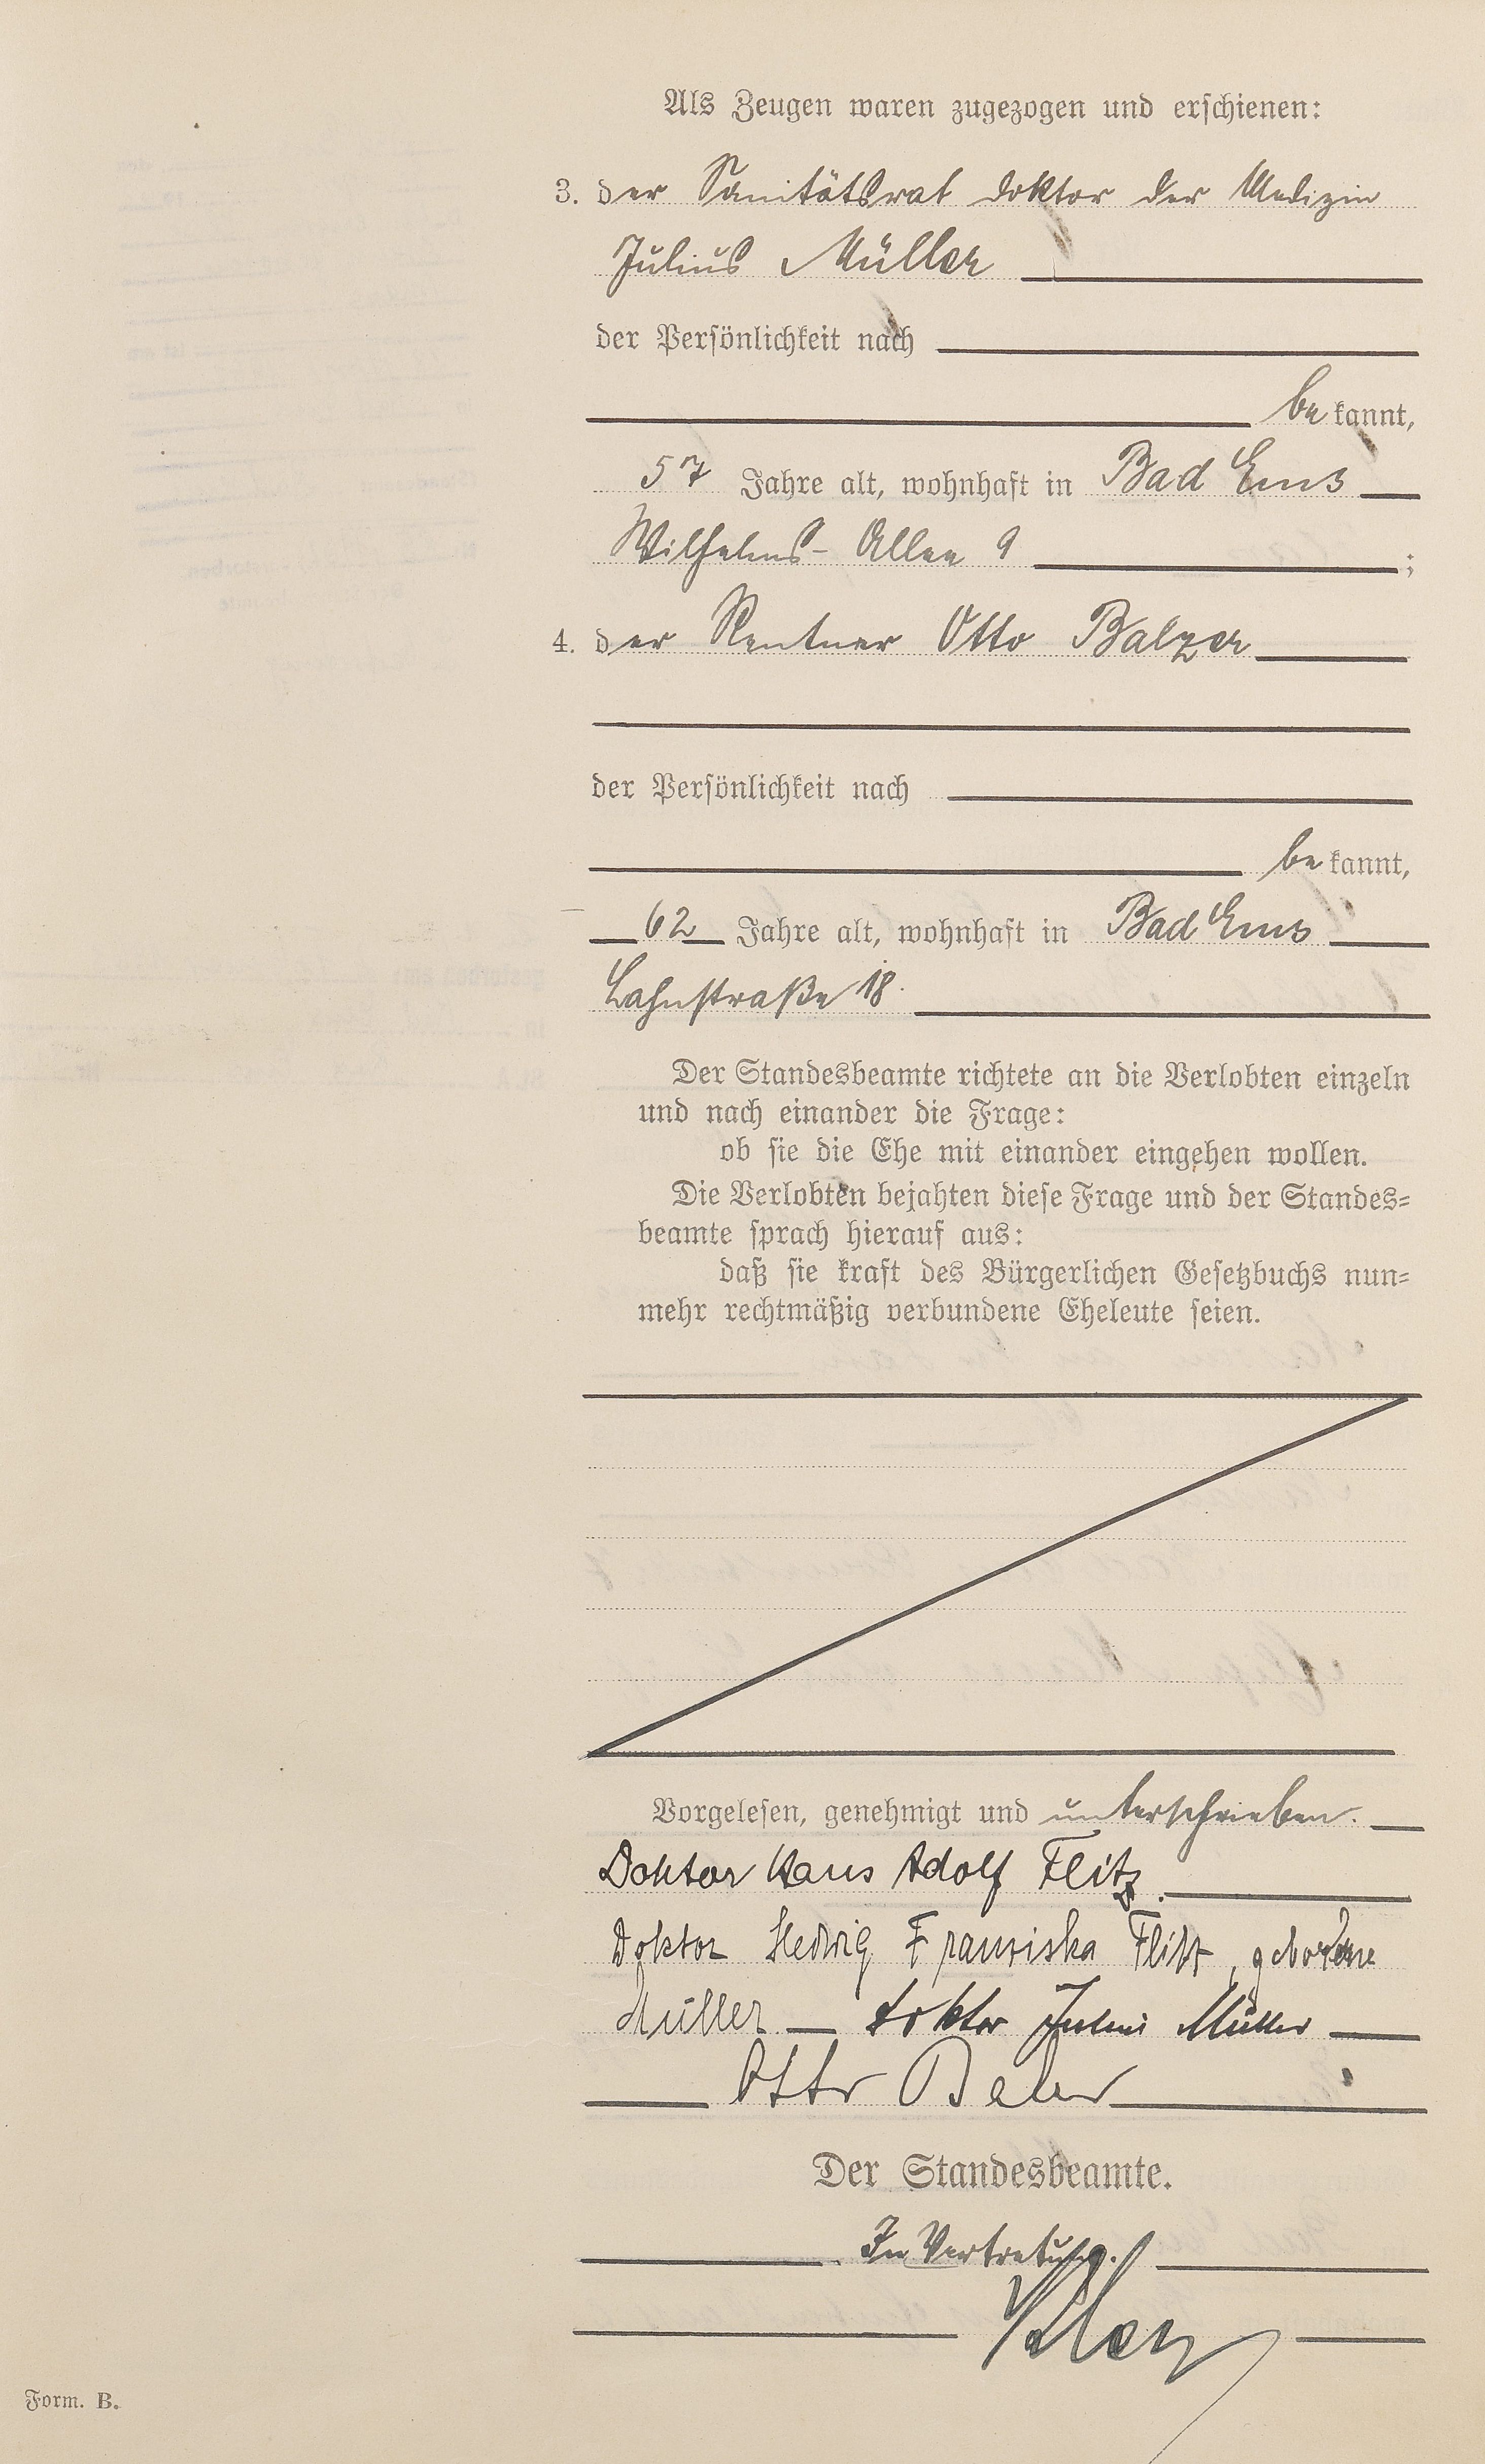 Als Zeugen waren zugezogen und erschienen:
3. der Sanitätsrat Doktor der Medizin
Julius Müller
der Persönlichkeit nach
bekannt,
57 Jahre alt, wohnhaft in Bad Ems
Wilhelms-Allee 9 ;
4. der Rentner Otto Balzer
der Persönlichkeit nach
bekannt,
62 Jahre alt, wohnhaft in Bad Ems
Lahnstraße 18.
Der Standesbeamte richtete an die Verlobten einzeln
und nach einander die Frage:
ob sie die Ehe mit einander eingehen wollen.
Die Verlobten bejahten diese Frage und der Standes=
beamte sprach hierauf aus:
daß sie kraft des Bürgerlichen Gesetzbuchs nun=
mehr rechtmäßig verbundene Eheleute seien.
Vorgelesen, genehmigt und unterschrieben.
Doktor Hans Adolf Flitz.
Doktor Hedwig Franziska Flitz, geborene
Müller Doktor Julius Müller
Otto Balzer
Der Standesbeamte.
In Vertretung.
Form. B.